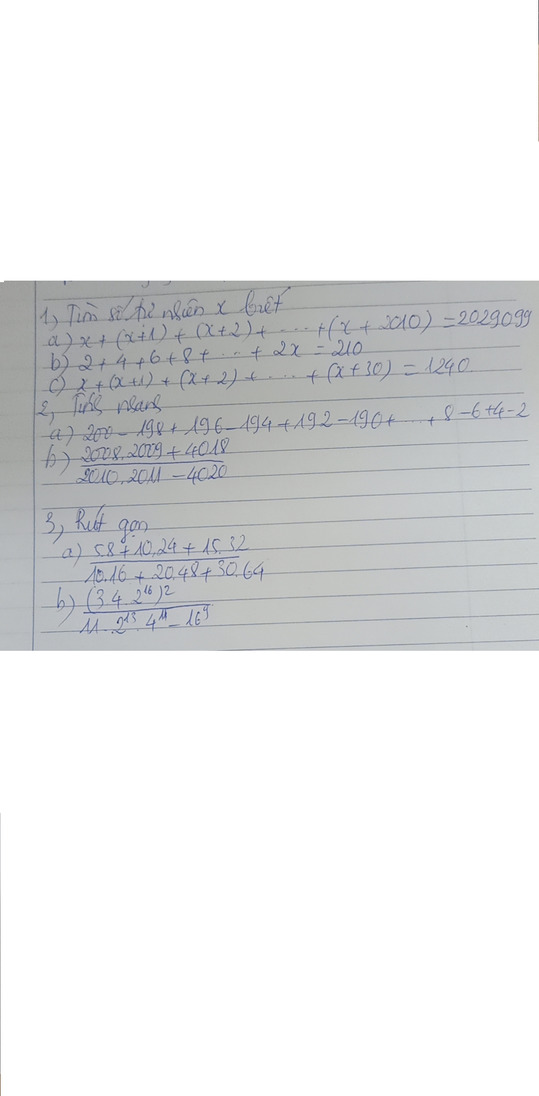 1, Tìm số tự nhiên x biết
a) x + (x+1) + (x+2) + ..... + (x + 2010) = 2029099
b) 2 + 4 + 6 + 8 + ... + 2x = 210
c) x + (x+1) + (x+2) + ..... + (x+30) = 1240
2, Tính nhanh
a) 200 - 198 + 196 - 194 + 192 - 190 + ..... + 8 - 6 + 4 - 2
b) 2008.2009 + 4018
2010.2011 - 4020
3, Rút gọn
a) 5.8 + 10.24 + 15.32
10.16 + 20.48 + 30.64
b) (3.4.2¹⁶)²
11.2¹³.4¹¹ - 16⁹